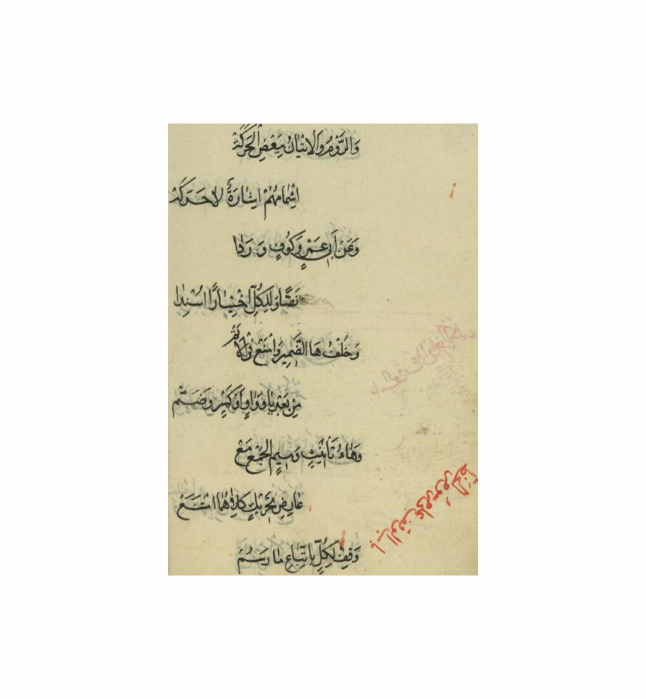 وَالرَّوْمُ وَالاتيان ببَعْضِ الحَرَكَهْ
اشمامهُمْ اشارَةٌ لا حَرَكَهْ
وَعَن أبي عَمْرٍو وَكوُفٍ وَرَدَا
نَصًّا وَلِلكُلِّ اخْتِيَارًا اسْنِدا
وَخُلْفُ هَا الضَّمِيرِ وَامْنَعْ في الاتَمّ
مِن بَعْدِ يا او واوٍ اوْ كَسْرٍ وَضَمّ
وَهَاءُ تَأنيثٍ وَمِيم الجمْع مَعْ
عارِضِ تحريكٍ كلاهُما امْتَنَعْ
باب الوقف على مرسوم الخط
وَقِفْ لِكُلٍّ باتِّباعِ ما رُسِمْ